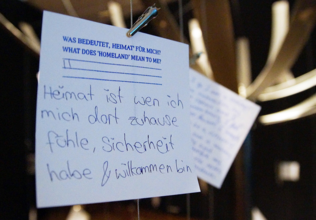 WAS BEDEUTET ‚HEIMAT' FÜR MICH?
WHAT DOES 'HOMELAND' MEAN TO ME?
Heimat ist wen ich
mich dort zuhause
fühle, sicherheit
habe & willkommen bin